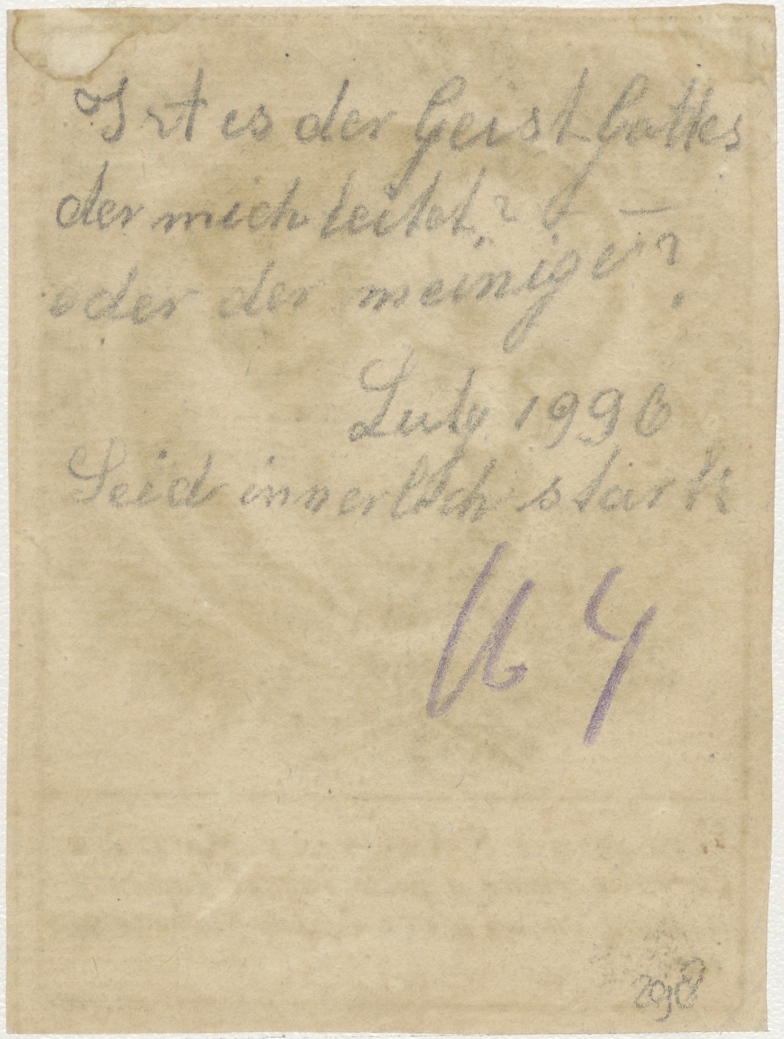 Ist es der Geist Gottes
der mich leitet?
oder der meinige?
July 1996
Seid innerlich stark
164
298